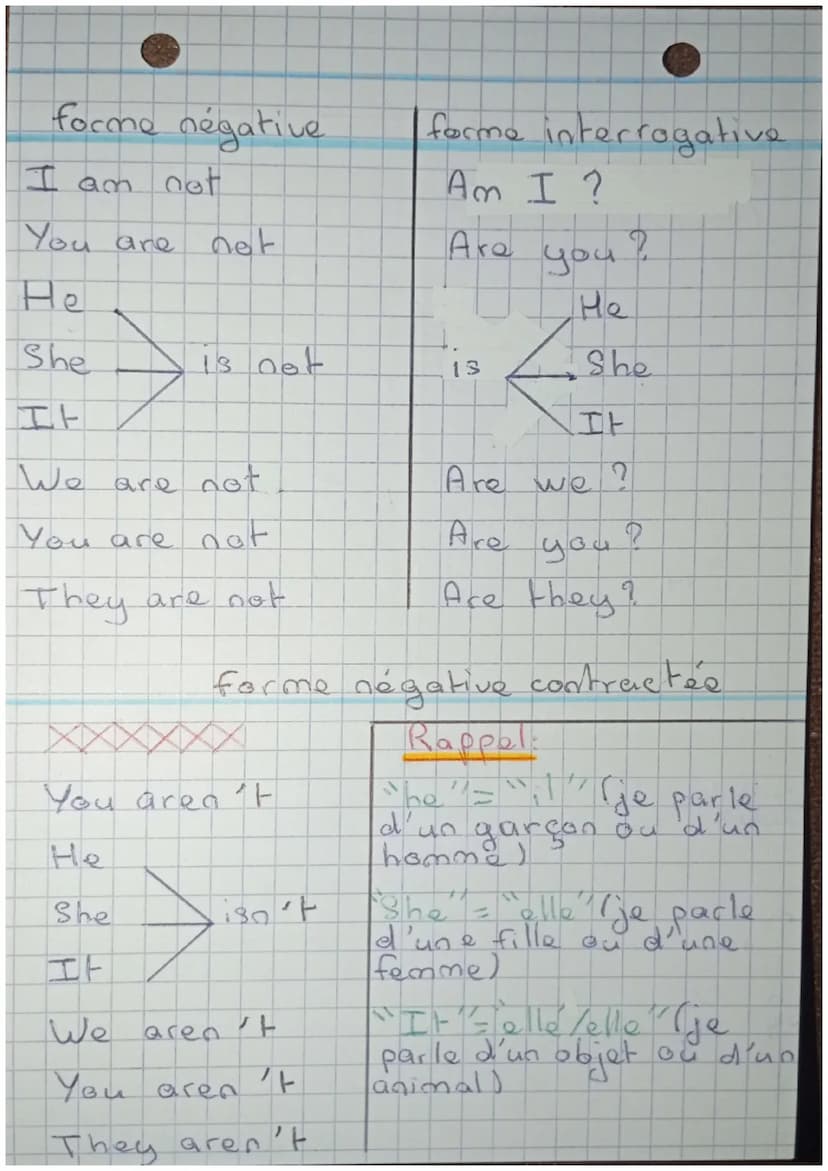 forme négative
I am not
You are not
He
She is not
It
We are not
You are not
They are not
forme interrogative
Am I ?
Are you ?
He
is She
It
Are we ?
Are you ?
Are they ?
forme négative contractée
You aren't
He
She isn't
It
We aren't
You aren't
They aren't
Rappel:
"he" = "il" (je parle
d'un garçon ou d'un
homme)
"She" = "elle" (je parle
d'une fille ou d'une
femme)
"It" = "elle/elle" (je
parle d'un objet ou d'un
animal)